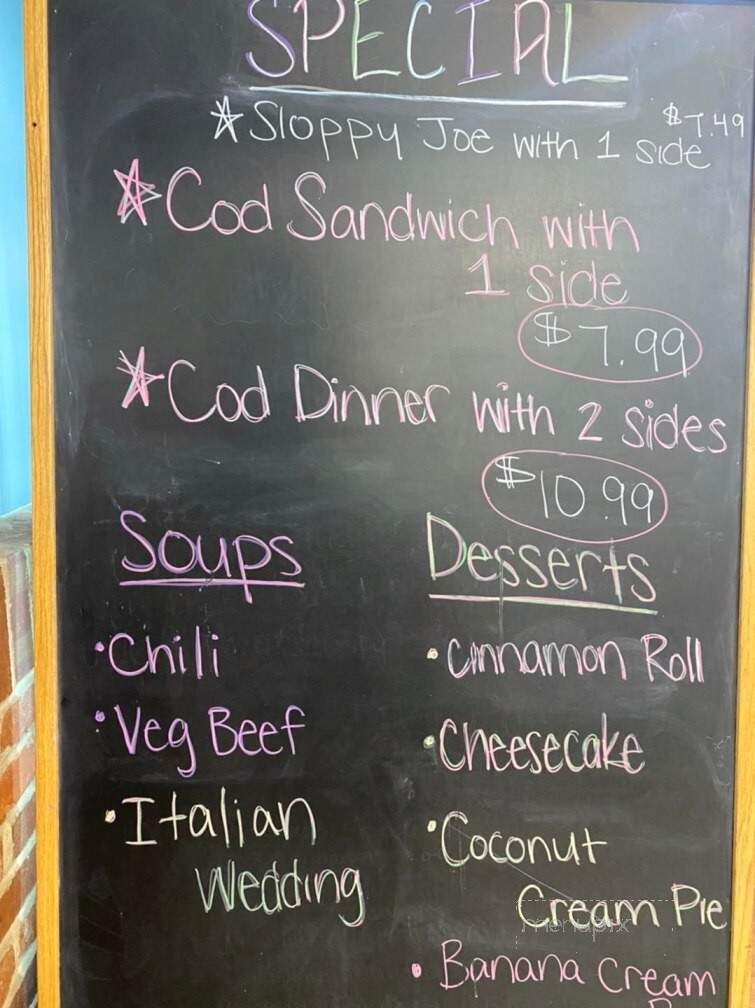 SPECIAL
$7.49
★ Sloppy Joe with 1 side
★ Cod Sandwich with
1 side
$7.99
★ Cod Dinner with 2 sides
$10.99
Soups
• Chili
• Veg Beef
• Italian
Wedding
Desserts
• Cinnamon Roll
• Cheesecake
• Coconut
Cream Pie
menupix
• Banana Cream